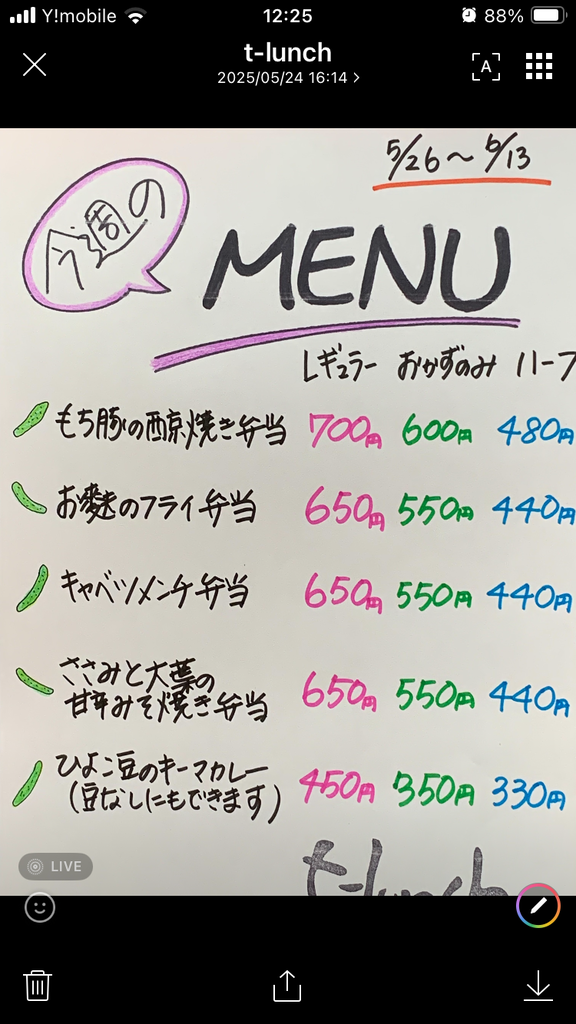 Y!mobile 12:25 88%
t-lunch
2025/05/24 16:14 >
A
5/26～6/13
今週の
MENU
レギュラー おかずのみ ハーフ
もち豚の西京焼き弁当 700円 600円 480円
お麩のフライ弁当 650円 550円 440円
キャベツメンチ弁当 650円 550円 440円
ささみと大葉の
甘辛みそ焼き弁当 650円 550円 440円
ひよこ豆のキーマカレー
(豆なしにもできます) 450円 350円 330円
LIVE
t-lunch